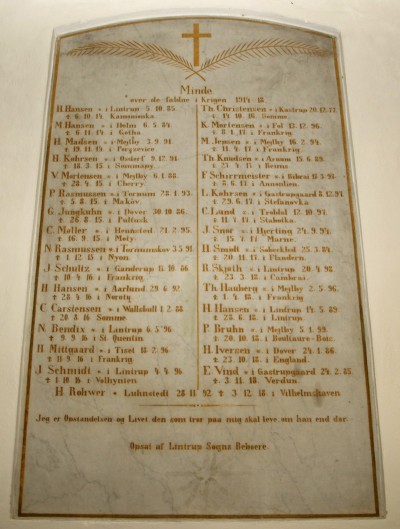 Minde
over de faldne i Krigen 1914-18
H. Hansen * i Lintrup 5.10.85.
✝ 6.10.14. Kamionka
M. Hansen * i Holm 6.5.84.
✝ 6.11.14. i Gotha
H. Madsen * i Mejlby 3.9.91.
✝ 19.11.14 i Porzevice
H. Kohrsen * i Osdorf 9.12.91.
✝ 18.3.15 i Sommepy
V. Mortensen * i Mejlby 6.1.88.
✝ 28.4.15 i Cherry
P. Rasmussen * i Tornum 28.1.93.
✝ 5.8.15 i Makow.
G. Jungkuhn * i Dover 30.10.86.
✝ 26.8.15 i Pultusk
C. Møller * i Hennstedt 21.2.95.
✝ 16.9.15 i Moty
N. Rasmussen * i Tornumskov 3.5.91.
✝ 1.12.15 i Nyon
J. Schultz * i Ganderup 11.10.86
✝ 10.4.16 i Frankrig
H. Hansen * i Aarlund 29.6.92.
✝ 28.4.16 i Noroty
C. Carstensen * i Wallsboll 1.2.88.
✝ 20.8.16 Somme
N. Bendix * i Lintrup 6.5.96.
✝ 9.9.16 i St. Quentin
H. Mittgaard * i Tiset 18.2.96.
✝ 11.9.16 i Frankrig
J. Schmidt * i Lintrup 4.4.96
✝ 1.10.16 i Volhynien
Th. Christensen * i Kastrup 20.12.77.
✝ 14.10.16. Somme.
K. Mortensen * i Fol 13.12.96.
✝ 8.1.17. i Frankrig
M. Jensen * i Mejlby 16.2.94.
✝ 11.4.17 i Frankrig
Th. Knudsen * i Avnum 15.6.89.
✝ 23.4.17 i Reims
F. Schirrmeister * i Bibesi 11.3.91.
✝ 6.5.17. i Annenlien
L. Kohrsen * i Gastrupgaard 8.12.97.
✝ 29.6.17 i Stefanowka
C. Lund * i Troldal 12.10.91.
✝ 11.7.17 i Slobotka.
J. Snor * i Hjerting 24.9.94.
✝ 15.7.17 Marne.
H. Smidt * i Sebockled 25.3.84.
✝ 20.11.17 i Flandern.
R. Skjøth * i Lintrup 20.4.98.
✝ 23.3.18 i Cambrai.
Th. Hauberg * i Mejlby 2.5.96.
✝ 1.4.18 i Frankrig
H. Hansen * i Lintrup 14.5.89.
✝ 28.6.18 i Lintrup.
P. Bruhn * i Mejlby 5.1.99.
✝ 20.10.18 i Boultaurs-Boiz.
H. Iversen * i Dover 24.1.86.
✝ 23.10.18 i England.
E. Vind * i Gastrupgaard 24.2.85.
✝ 3.11.18 Verdun
H Rohwer * Luhnstedt 28 11 92 ✝ 3.12.18 i Vilhelmshaven
Jeg er Opstandelsen og Livet den som tror paa mig skal leve om han end dør.
Opsat af Lintrup Sogns Beboere.